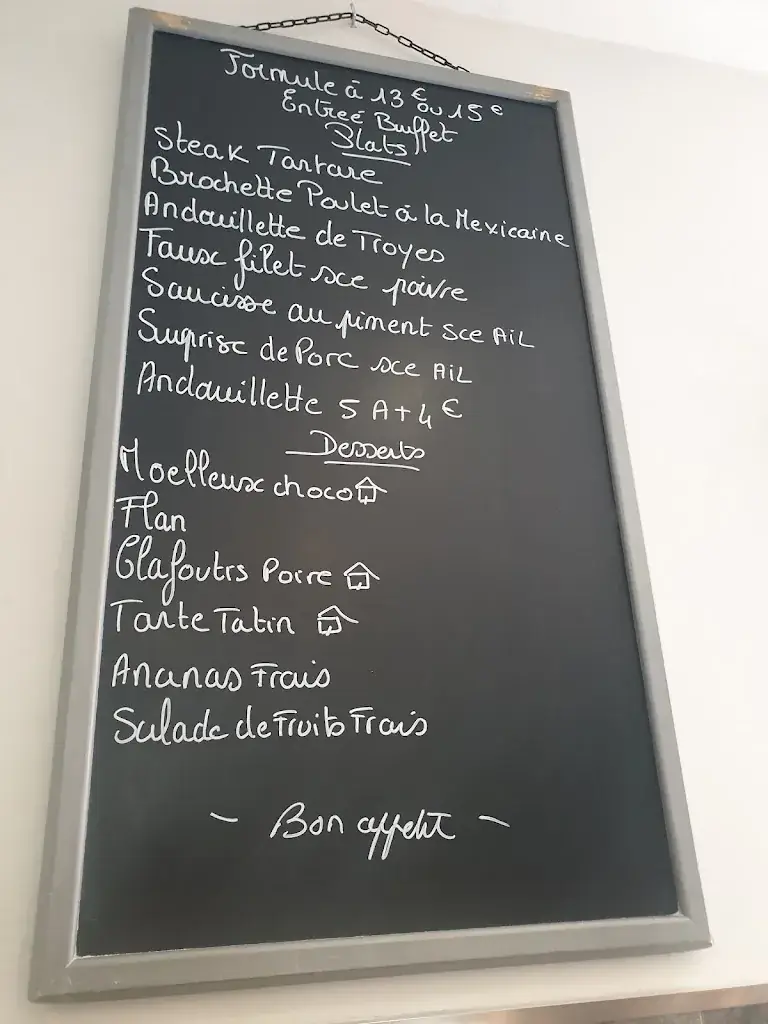 Formule à 13 € ou 15 €
Entreé Buffet
Plats
Steak Tartare
Brochette Poulet à la Mexicaine
Andouillette de Troyes
Faux filet sce poivre
Saucisse au piment sce AiL
Surprise de Porc sce AiL
Andouillette 5 A + 4 €
Desserts
Moelleux choco
Flan
Clafoutis Poire
Tarte Tatin
Ananas Frais
Salade de Fruits Frais
- Bon appetit -